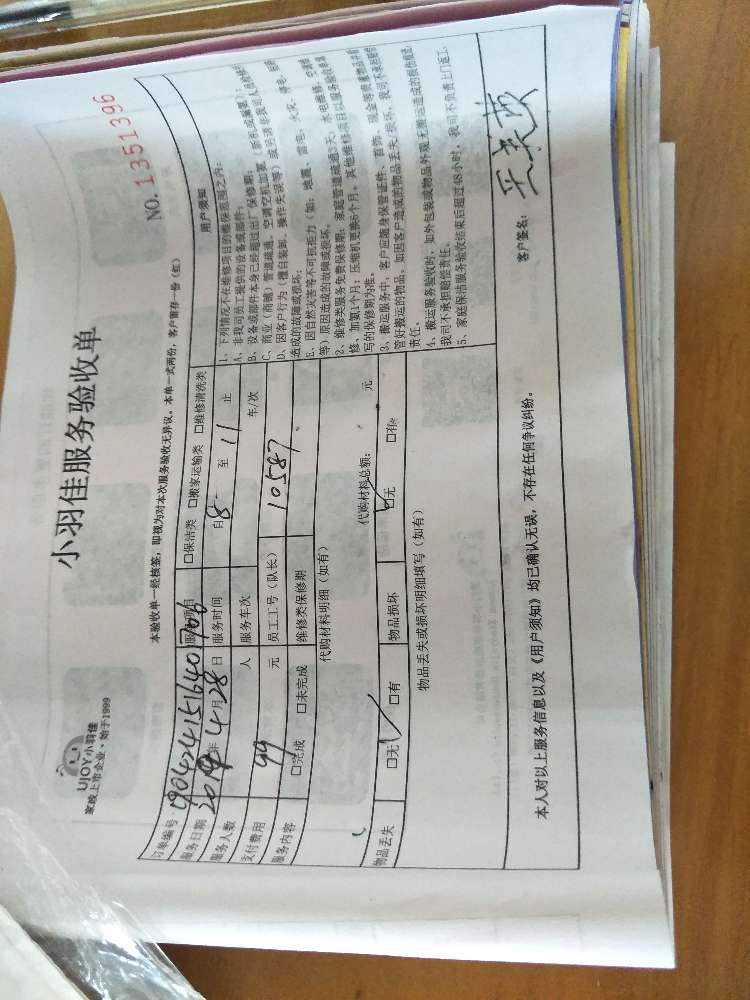 UJOY小羽佳
家政上市企业·始于1999
小羽佳服务验收单
NO. 1351396
本验收单一经核签，即视为对本次服务验收无异议。本单一式两份，客户留存一份（红）
订单编号 190424151640 1706 服务项目 □保洁类 □搬家运输类 □维修清洗类
服务日期 2019年4月28日 服务时间 自8 至11 止
服务人数 人 服务车次 车/次
支付费用 99 元 员工工号（队长） 10587
服务内容 □完成 □未完成 维修类保修期
代购材料明细（如有）
代购材料总额： 元
物品丢失 □无 □有 物品损坏 □无 □有
物品丢失或损坏明细填写（如有）
用户须知
1、下列情况不在维修项目的维保范围之内：
A、非我司员工提供的设备或部件；
B、设备或部件本身已经超过出厂保修期；
C、商业（商铺）管道疏通、空调空机加氨（新机或漏氟）；
D、因客户行为（擅自装卸、操作失误等）或另请非我司人员维修
造成的故障或损坏；
E、因自然灾害等不可抗拒力（如：地震、雷电、火灾、
等）原因造成的故障或损坏。
2、维修类服务免费保修期：家庭管道疏通3天；水电维修、空调维
修、加氨1个月；压缩机更换6个月。其他维修项目以服务验收单填
写的保修期为准。
3、搬运服务中，客户应随身保管证件、首饰、现金等贵重物品并看
管好搬运的物品，如因客户造成的物品丢失、损坏，我司不承担赔偿
责任。
4、搬运服务验收时，如外包装或物品外观无搬运造成的损伤痕迹
我司不承担赔偿责任。
5、家庭保洁服务验收结束后超过48小时，我司不负责上门返工。
本人对以上服务信息以及《用户须知》均已确认无误，不存在任何争议纠纷。
客户签名：